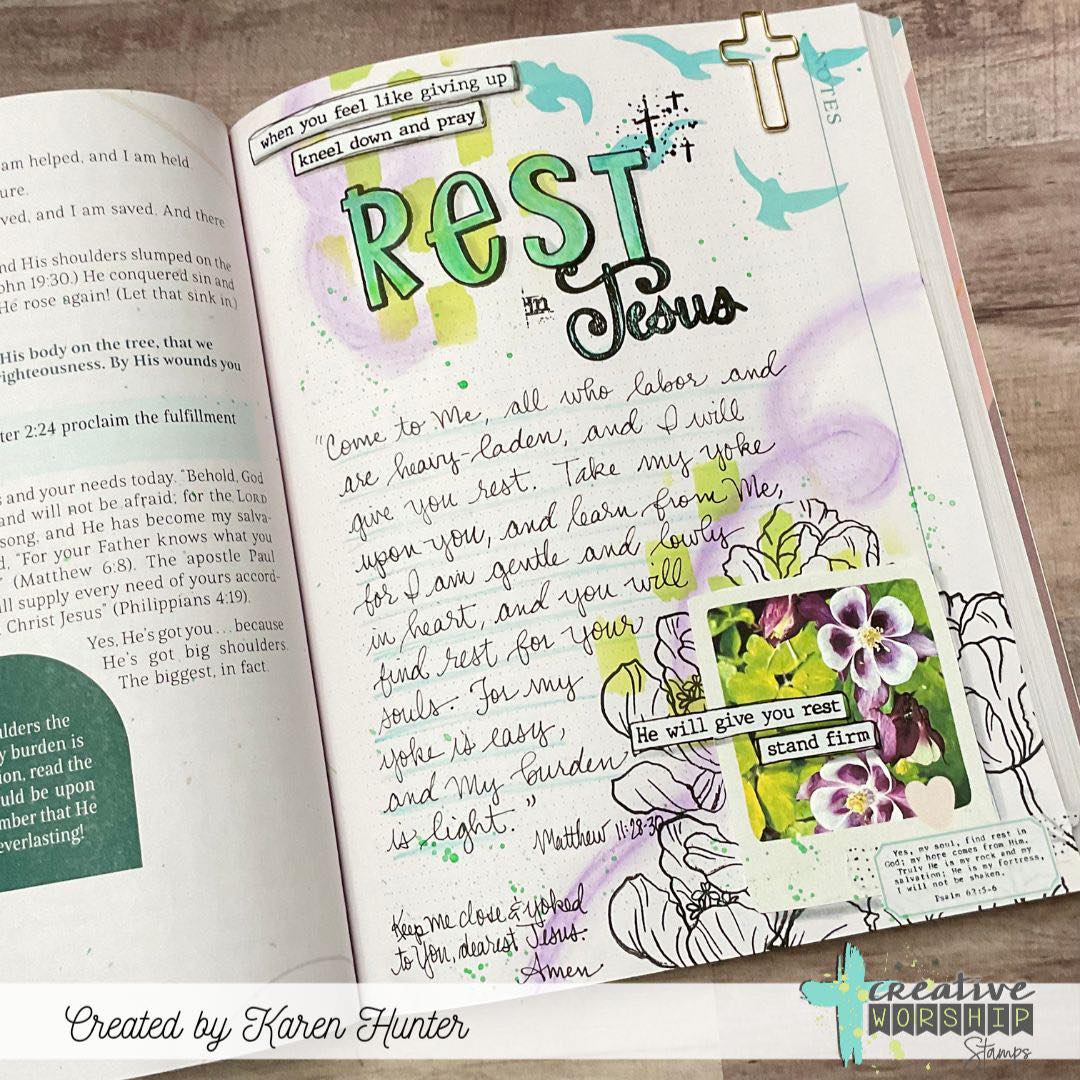 am helped, and I am held
ure.
ved, and I am saved. And there
nd His shoulders slumped on the
ohn 19:30.) He conquered sin and
He rose again! (Let that sink in.)
His body on the tree, that we
ighteousness. By His wounds you
ter 2:24 proclaim the fulfillment
s and your needs today. "Behold, God
and will not be afraid; for the LORD
song, and He has become my salva-
d, "For your Father knows what you
" (Matthew 6:8). The apostle Paul
ill supply every need of yours accord-
Christ Jesus" (Philippians 4:19).
Yes, He's got you ... because
He's got big shoulders.
The biggest, in fact.
ulders the
y burden is
ion, read the
uld be upon
mber that He
everlasting!
NOTES
when you feel like giving up
kneel down and pray
ReST
in
Jesus
"Come to Me, all who labor and
are heavy-laden, and I will
give you rest. Take my yoke
upon you, and learn from Me,
for I am gentle and lowly
in heart, and you will
find rest for your
souls. For my
yoke is easy,
and My burden
is light."
Matthew 11:28-30
He will give you rest
stand firm
Yes, my soul, find rest in
God; my hope comes from Him.
Truly He is my rock and my
salvation; He is my fortress,
I will not be shaken.
Psalm 62:5-6
Keep me close & yoked
to You, dearest Jesus.
Amen
Created by Karen Hunter
creative
WORSHIP
Stamps